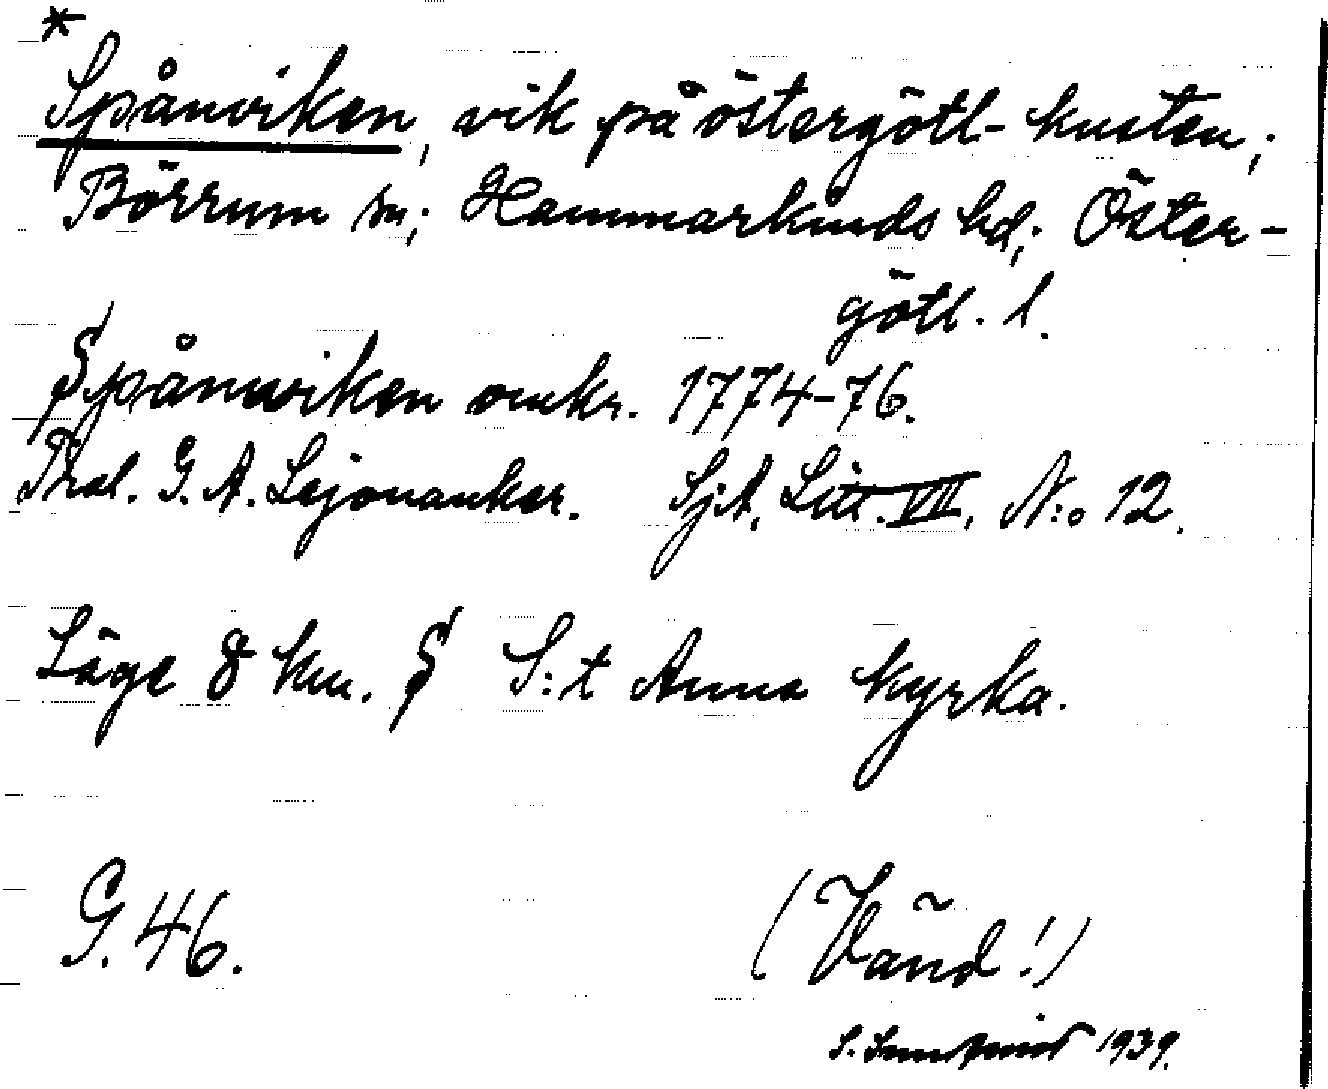 *
Spånviken, vik på östergötl-kusten;
Börrum sn; Hammarkinds hd; Öster-
götl. l.
Spånwiken omkr. 1774-76.
G. A. Lejonanker. SjA, Litt. VII, N:o 12.
Läge 8 km. S S:t Anna kyrka.
G. 46. (Vänd!)
S. 1939.